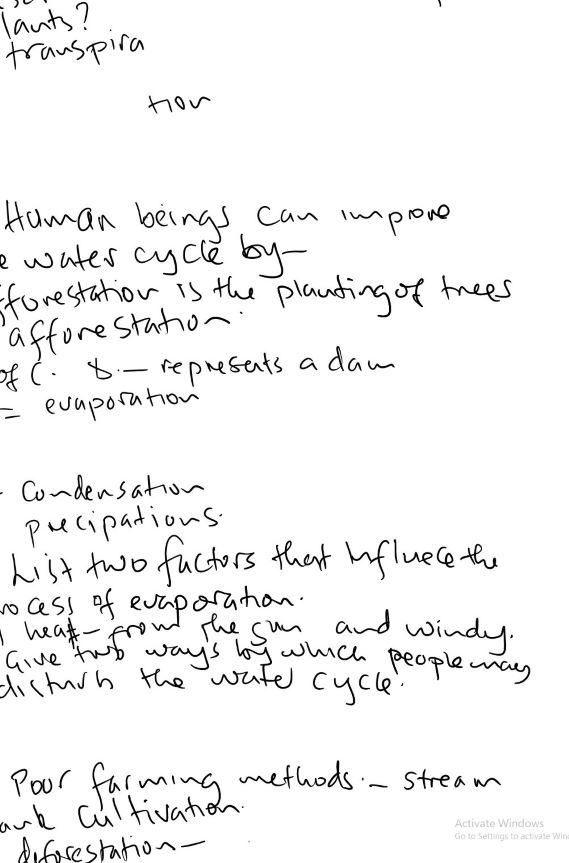 lants?
transpira
tion
Human beings can improve
e water cycle by-
fforestation is the planting of trees
afforestation.
of C. 8.- represents a dam
= evaporation
- Condensation
precipations.
List two factors that Influece the
rocess of evaporation.
heat- from the sun and windy.
Give two ways by which people may
disturb the water cycle.
Poor farming methods.- stream
ank cultivation.
diforestation-
Activate Windows
Go to Settings to activate Win